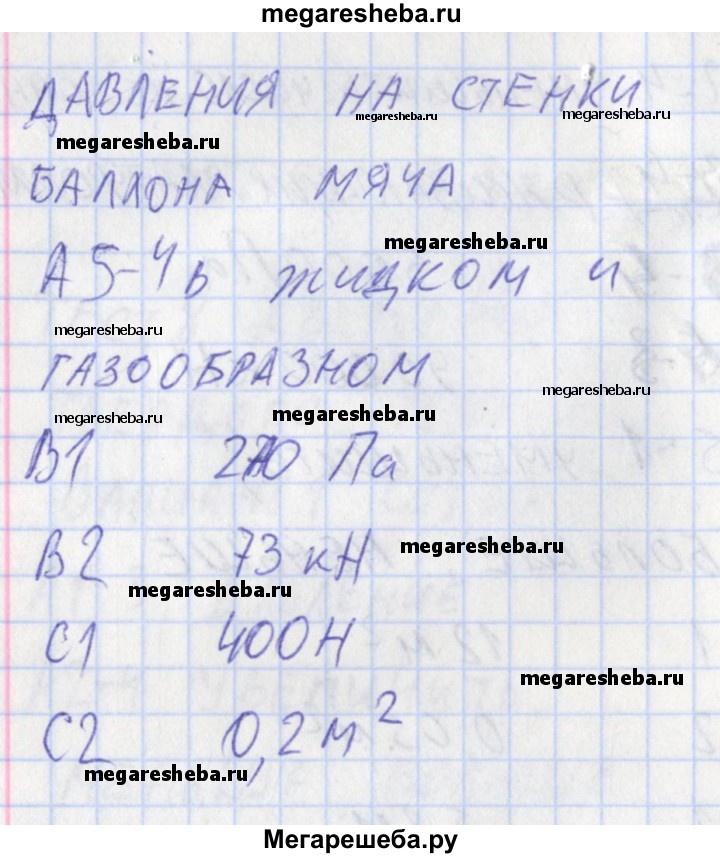 megaresheba.ru
ДАВЛЕНИЯ НА СТЕНКИ
megaresheba.ru
megaresheba.ru
megaresheba.ru
БАЛЛОНА МЯЧА
megaresheba.ru
А5-4 в жидком и
megaresheba.ru
ГАЗООБРАЗНОМ
megaresheba.ru
megaresheba.ru
megaresheba.ru
В1 Па
В2 73 кН
megaresheba.ru
megaresheba.ru
С1 400Н
megaresheba.ru
С2 0,2 м²
megaresheba.ru
Мегарешеба.ру